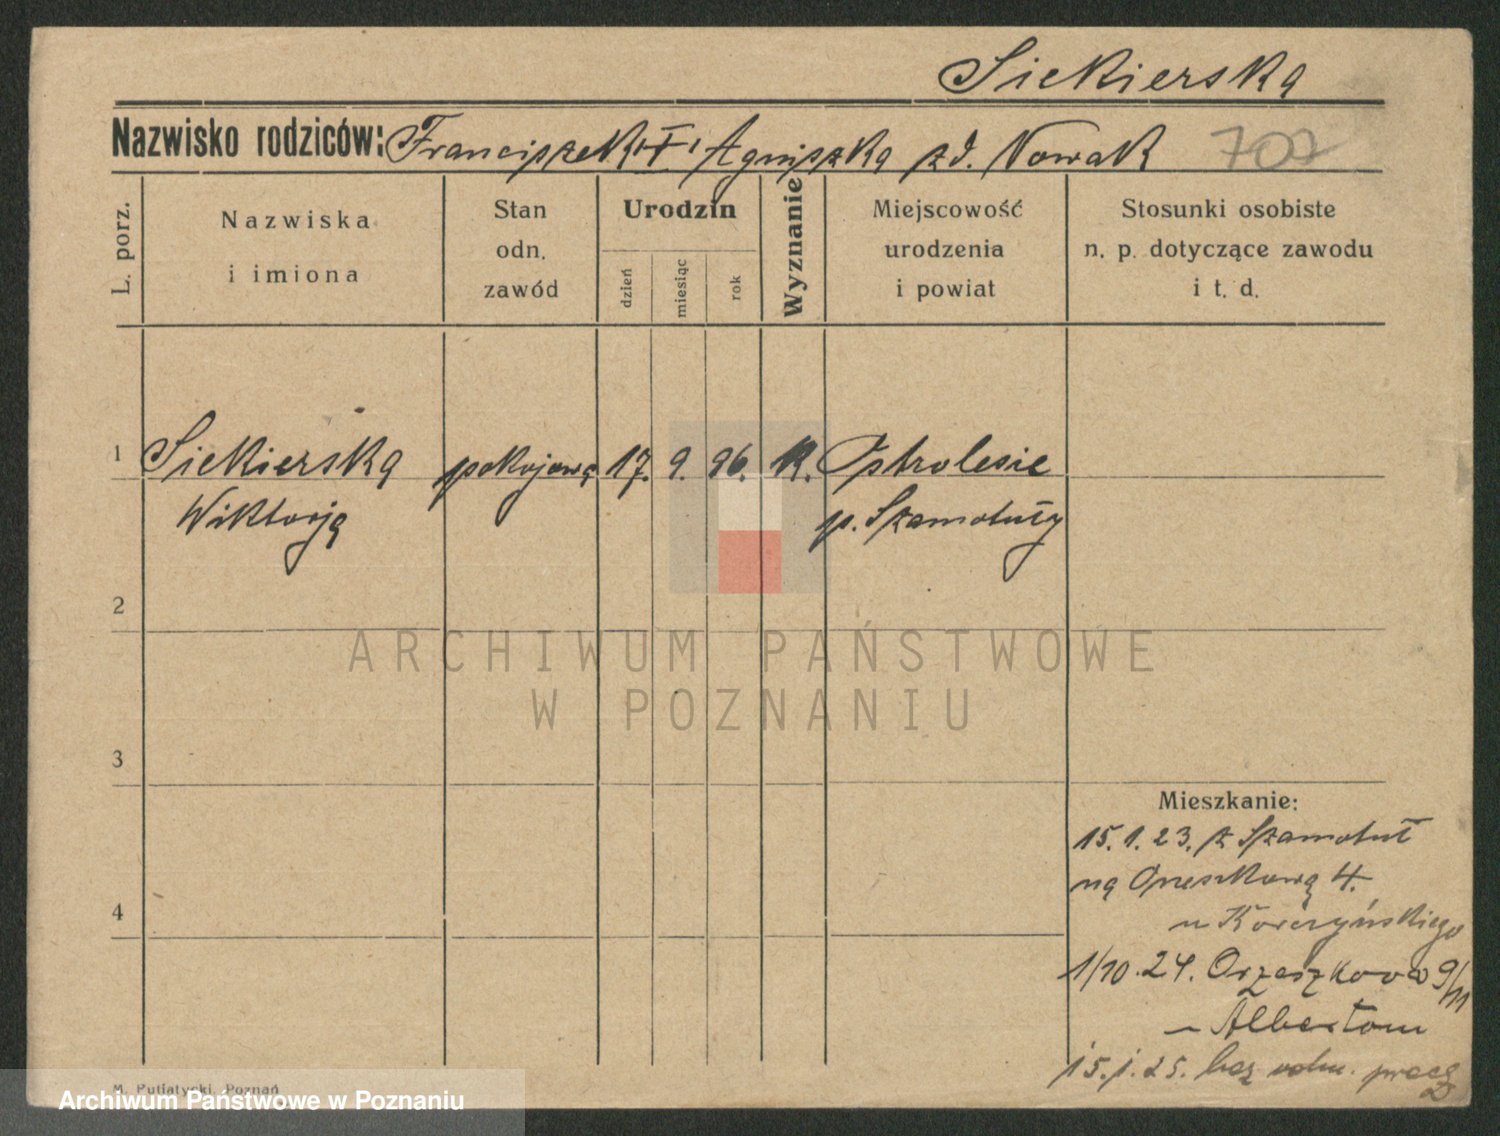 Siekierska
Nazwisko rodziców: Franciszek i Agnieszka zd. Nowak 707
L. porz.
Nazwiska
i imiona
Stan
odn.
zawód
Urodzin
dzień
miesiąc
rok
Wyznanie
Miejscowość
urodzenia
i powiat
Stosunki osobiste
n. p. dotyczące zawodu
i t. d.
1 Siekierska pokojowa 17. 9. 96. K. Ostrolesie
Wiktorja p. Szamotuły
2
ARCHIWUM PAŃSTWOWE
W POZNANIU
3
Mieszkanie:
15.1.23. z Szamotuł
na Orzeszkowa 4.
4
u Korczyńskiego
1/10.24. Orzeszkowa 9/11
Albert
15.1.25. bez
M. Putiatycki, Poznań
Archiwum Państwowe w Poznaniu